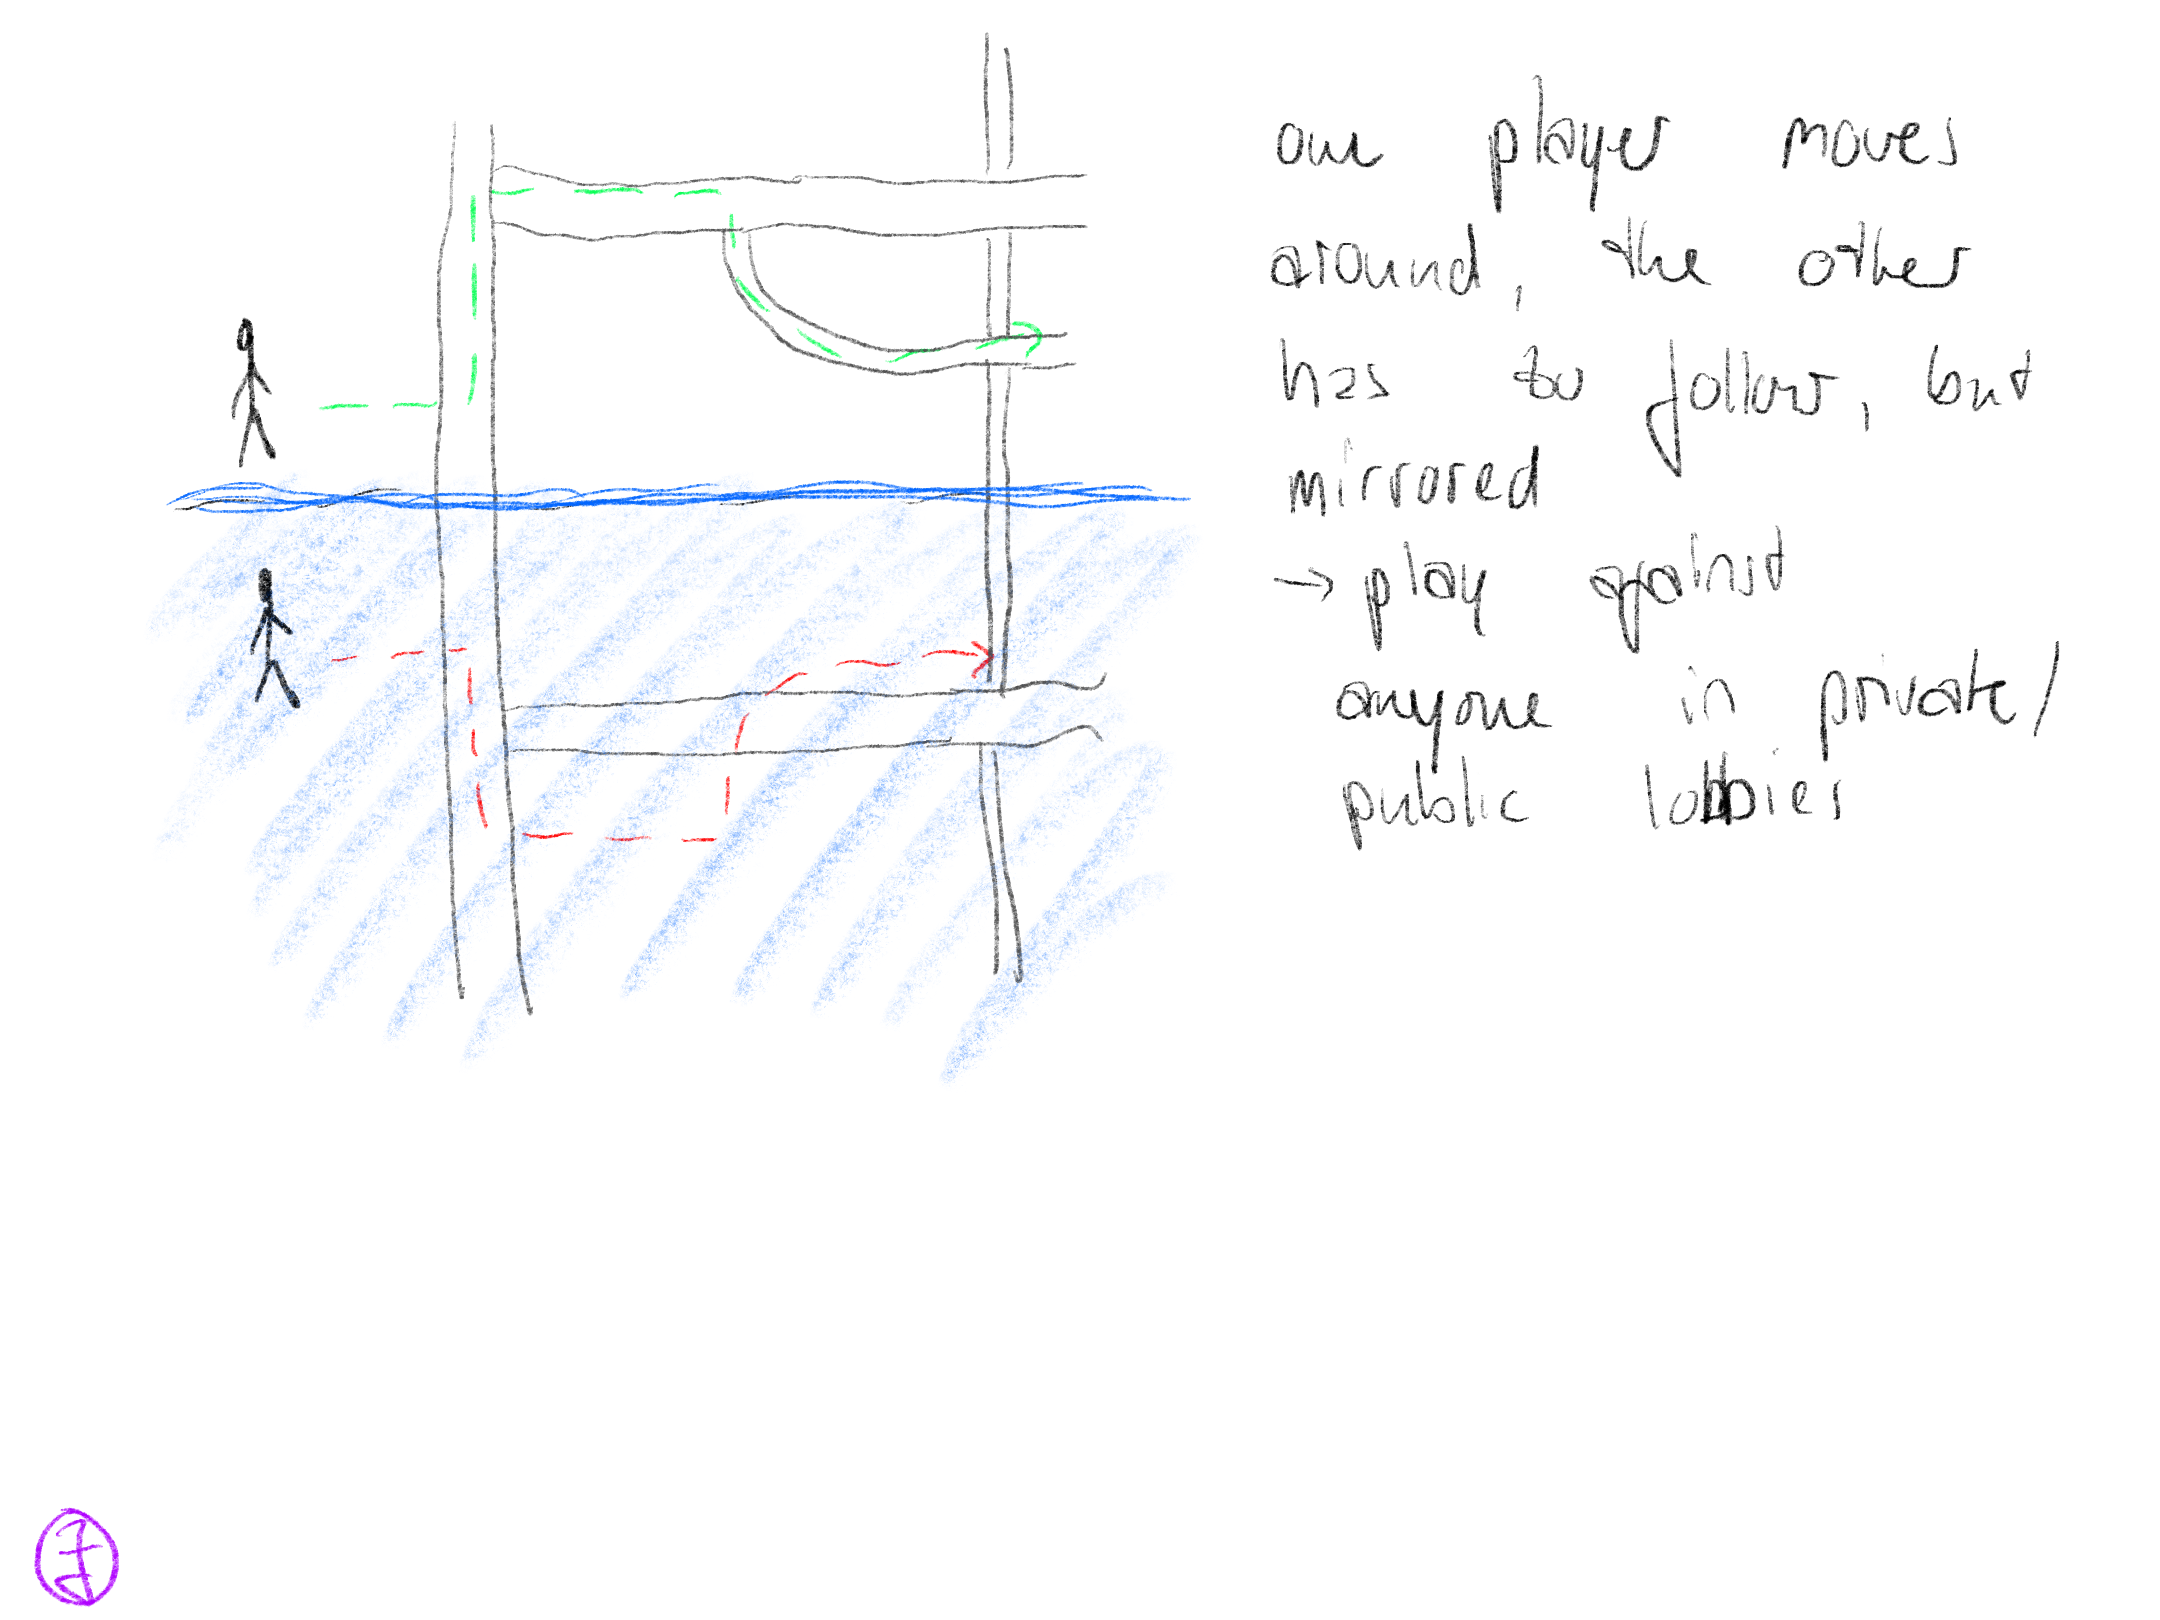 one player moves
around, the other
has to follow, but
mirrored
→ play against
anyone in private/
public lobbies